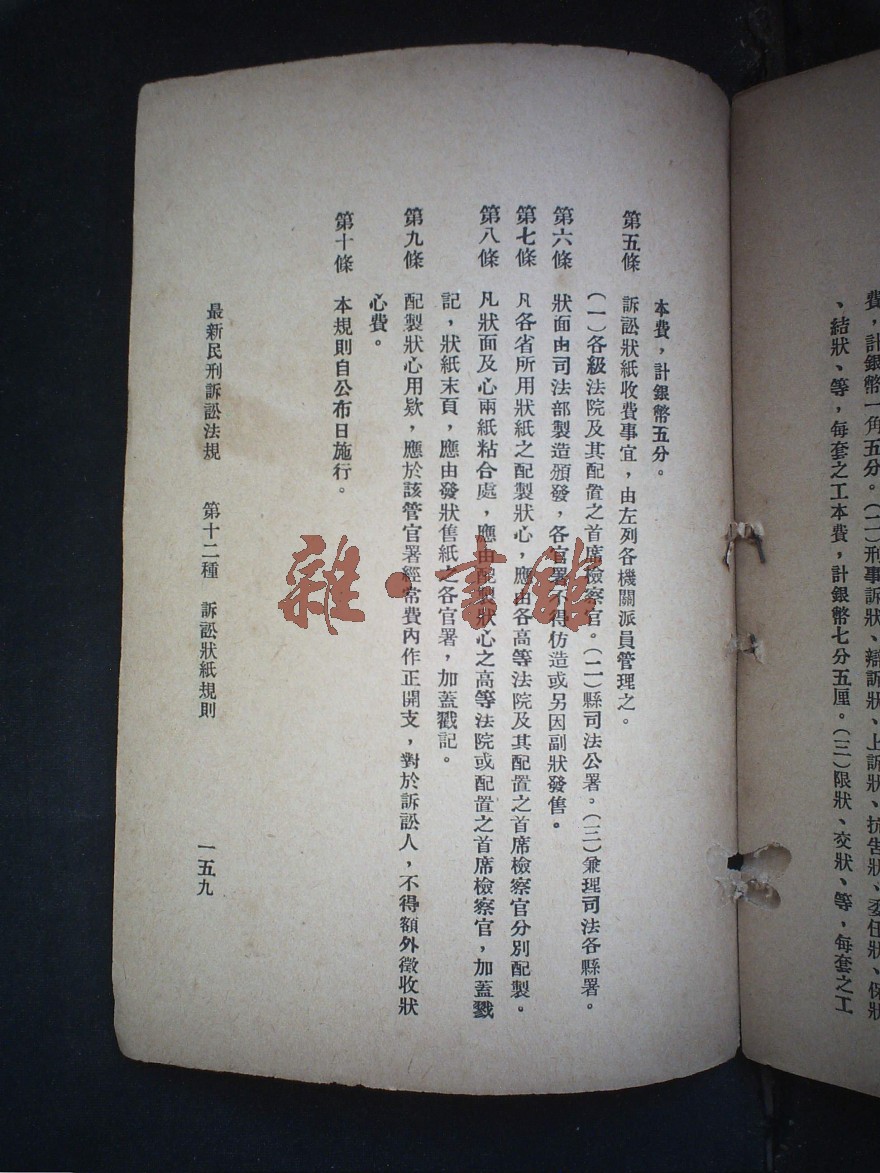 費，計銀幣一角五分。（二）刑事訴狀、辯訴狀、上訴狀、抗告狀、委任狀、保狀
、結狀、等，每套之工本費，計銀幣七分五厘。（三）限狀、交狀、等，每套之工
本費，計銀幣五分。
第五條　訴訟狀紙收費事宜，由左列各機關派員管理之。
（一）各級法院及其配置之首席檢察官。（二）縣司法公署。（三）兼理司法各縣署。
第六條　狀面由司法部製造頒發，各官署不得仿造或另因副狀發售。
第七條　凡各省所用狀紙之配製狀心，應由各高等法院及其配置之首席檢察官分別配製。
第八條　凡狀面及心兩紙粘合處，應由配製狀心之高等法院或配置之首席檢察官，加蓋戳
記，狀紙末頁，應由發狀售紙之各官署，加蓋戳記。
第九條　配製狀心用欵，應於該管官署經常費內作正開支，對於訴訟人，不得額外徵收狀
心費。
第十條　本規則自公布日施行。
最新民刑訴訟法規　第十二種　訴訟狀紙規則　一五九
雜·書館